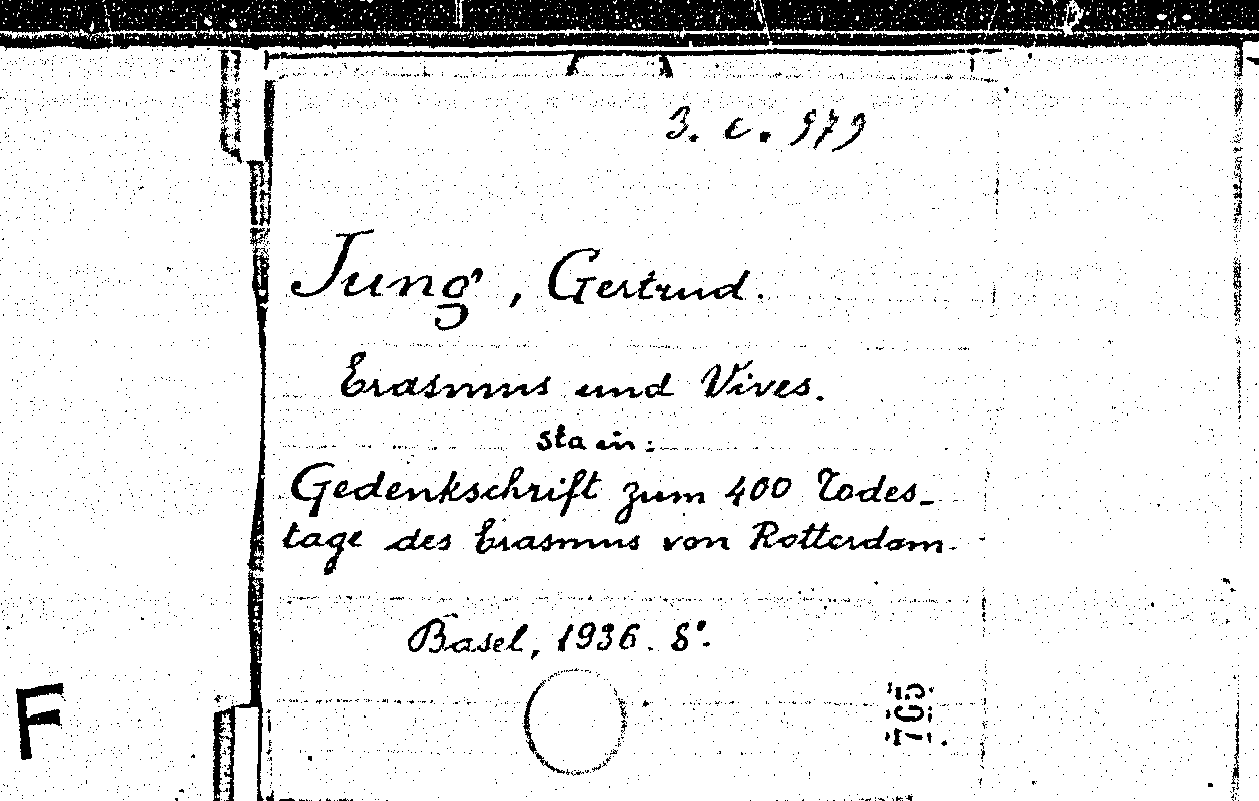 3. c. 979
Jung, Gertrud.
Erasmus und Vives.
sta in:
Gedenkschrift zum 400 Todes-
tage des Erasmus von Rotterdam.
Basel, 1936. 8°.
F
705